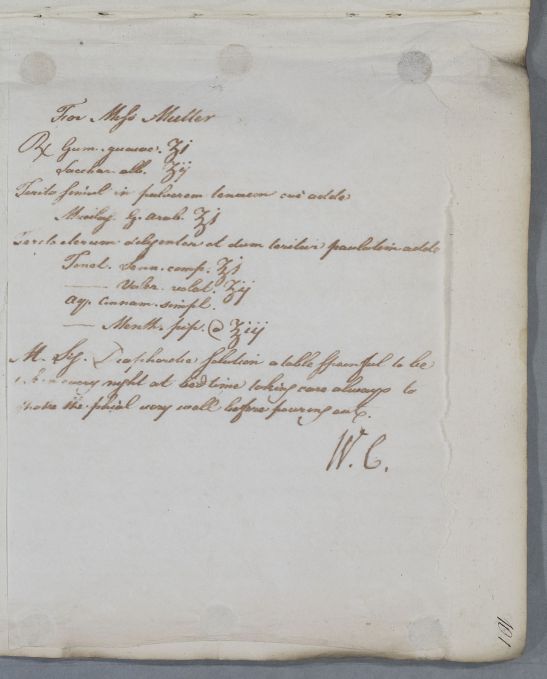 For Miss Muller
℞ Gum. guaiac. ʒj
Sacchar. alb. ʒij
Terito simul in pulverem tenuem cui adde
Mucilag. G. arab. ʒj
Terito iterum diligenter et dum teritur paulatim adde
Tinct. Senn. comp. ʒj
—— Valer. volat. ʒij
Aq. Cinnam. simpl.
—— Menth. pip. @ ʒiij
M. Sig. solution a table spoonful to be
every night at bed time taking care always to
shake the phial very well before pouring out.
W. C.
101